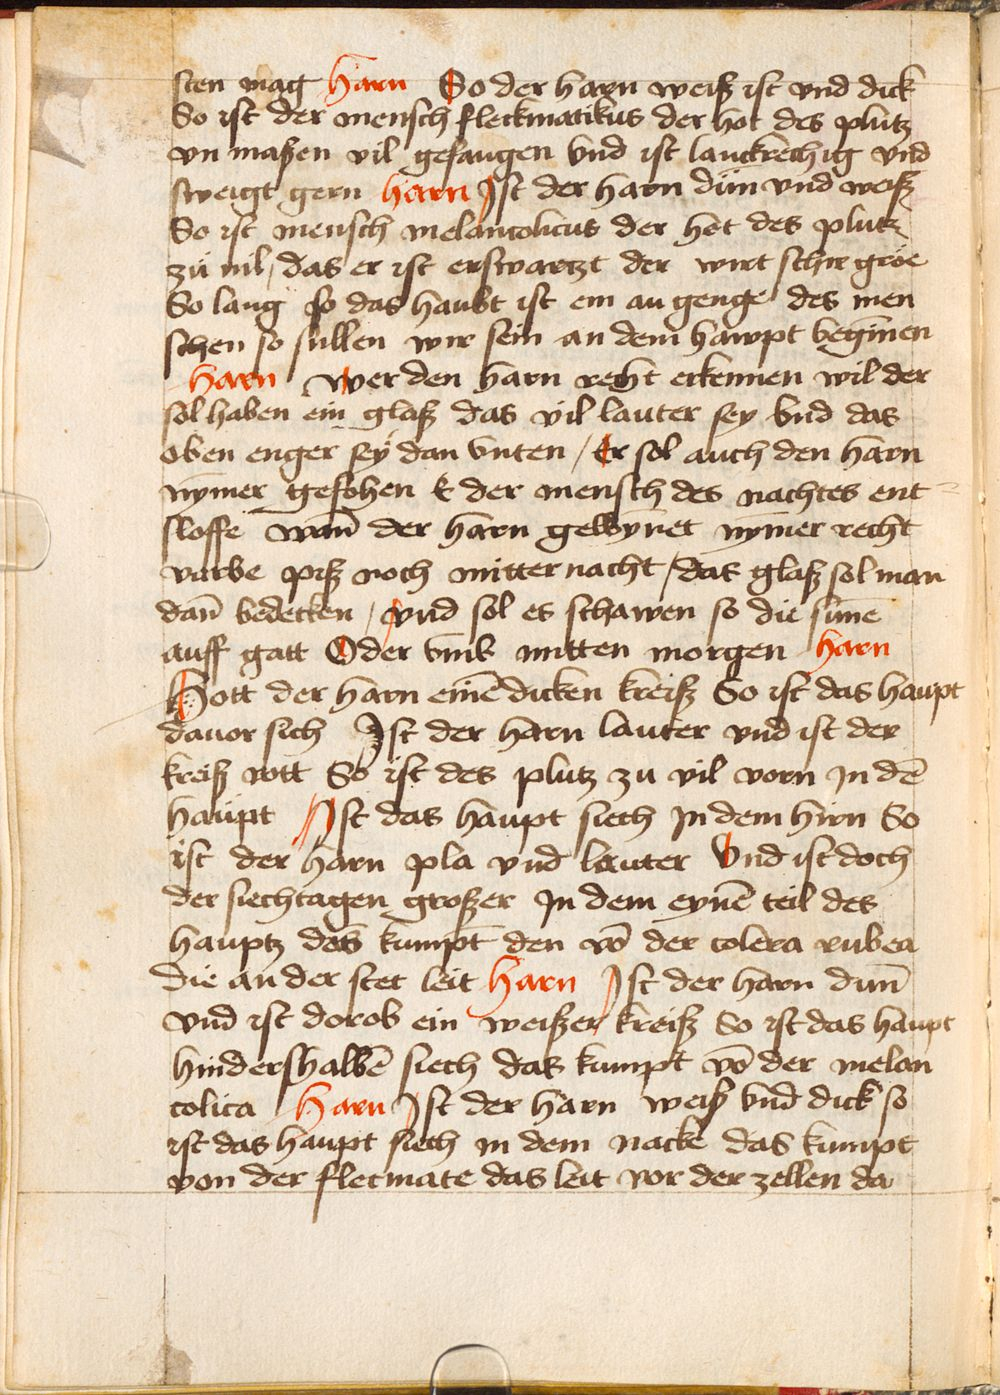 sten mag Harn So der harn weiß ist vnd dick
So ist der mensch fleckmatikus der hot des plutz
vn maßen vil gefangen vnd ist lanckrechig vnd
sweigt gern harn Ist der harn dün vnd weiß
So ist mensch melancolicus der hot des plutz
zü vil / das er ist erswartzt der wirt schir groe
So lang so das haubt ist ein an genge des men
schen so süllen wir sein an dem hawpt beginnen
Harn Wer den harn reht erkennen wil der
sol haben ein glaß das vil lauter sey vnd das
oben enger sey dan vnten / Er sol auch den harn
nymer gesehen E der mensch des nachtes ent
sloffe wañ der harn gewynet nymer recht
varbe piß noch mitternacht / das glaß sol man
dañ bedecken / vnd sol es schawen so die suñe
auff gatt Oder vmb mitten morgen harn
Hott der harn einē dicken kreiß So ist das haupt
dauor siech Ist der harn lauter vnd ist der
kreiß rott So ist des plutz zu vil vorn In dē
haupt Ist das haupt siech In dem hirn So
ist der harn pla vnd lauter Vnd ist doch
der siechtagen großer In dem eynē teil des
hauptz das kumpt den vō der colera rubea
die an der stet leit Harn Ist der harn duñ
vnd ist dorob ein weißer kreiß So ist das haupt
hindershalbē siech das kumpt vō der melan
colica Harn Ist der harn weiß vnd dick so
ist das haupt siech in dem nacke das kumpt
von der flecmate das leit vor der zellen da